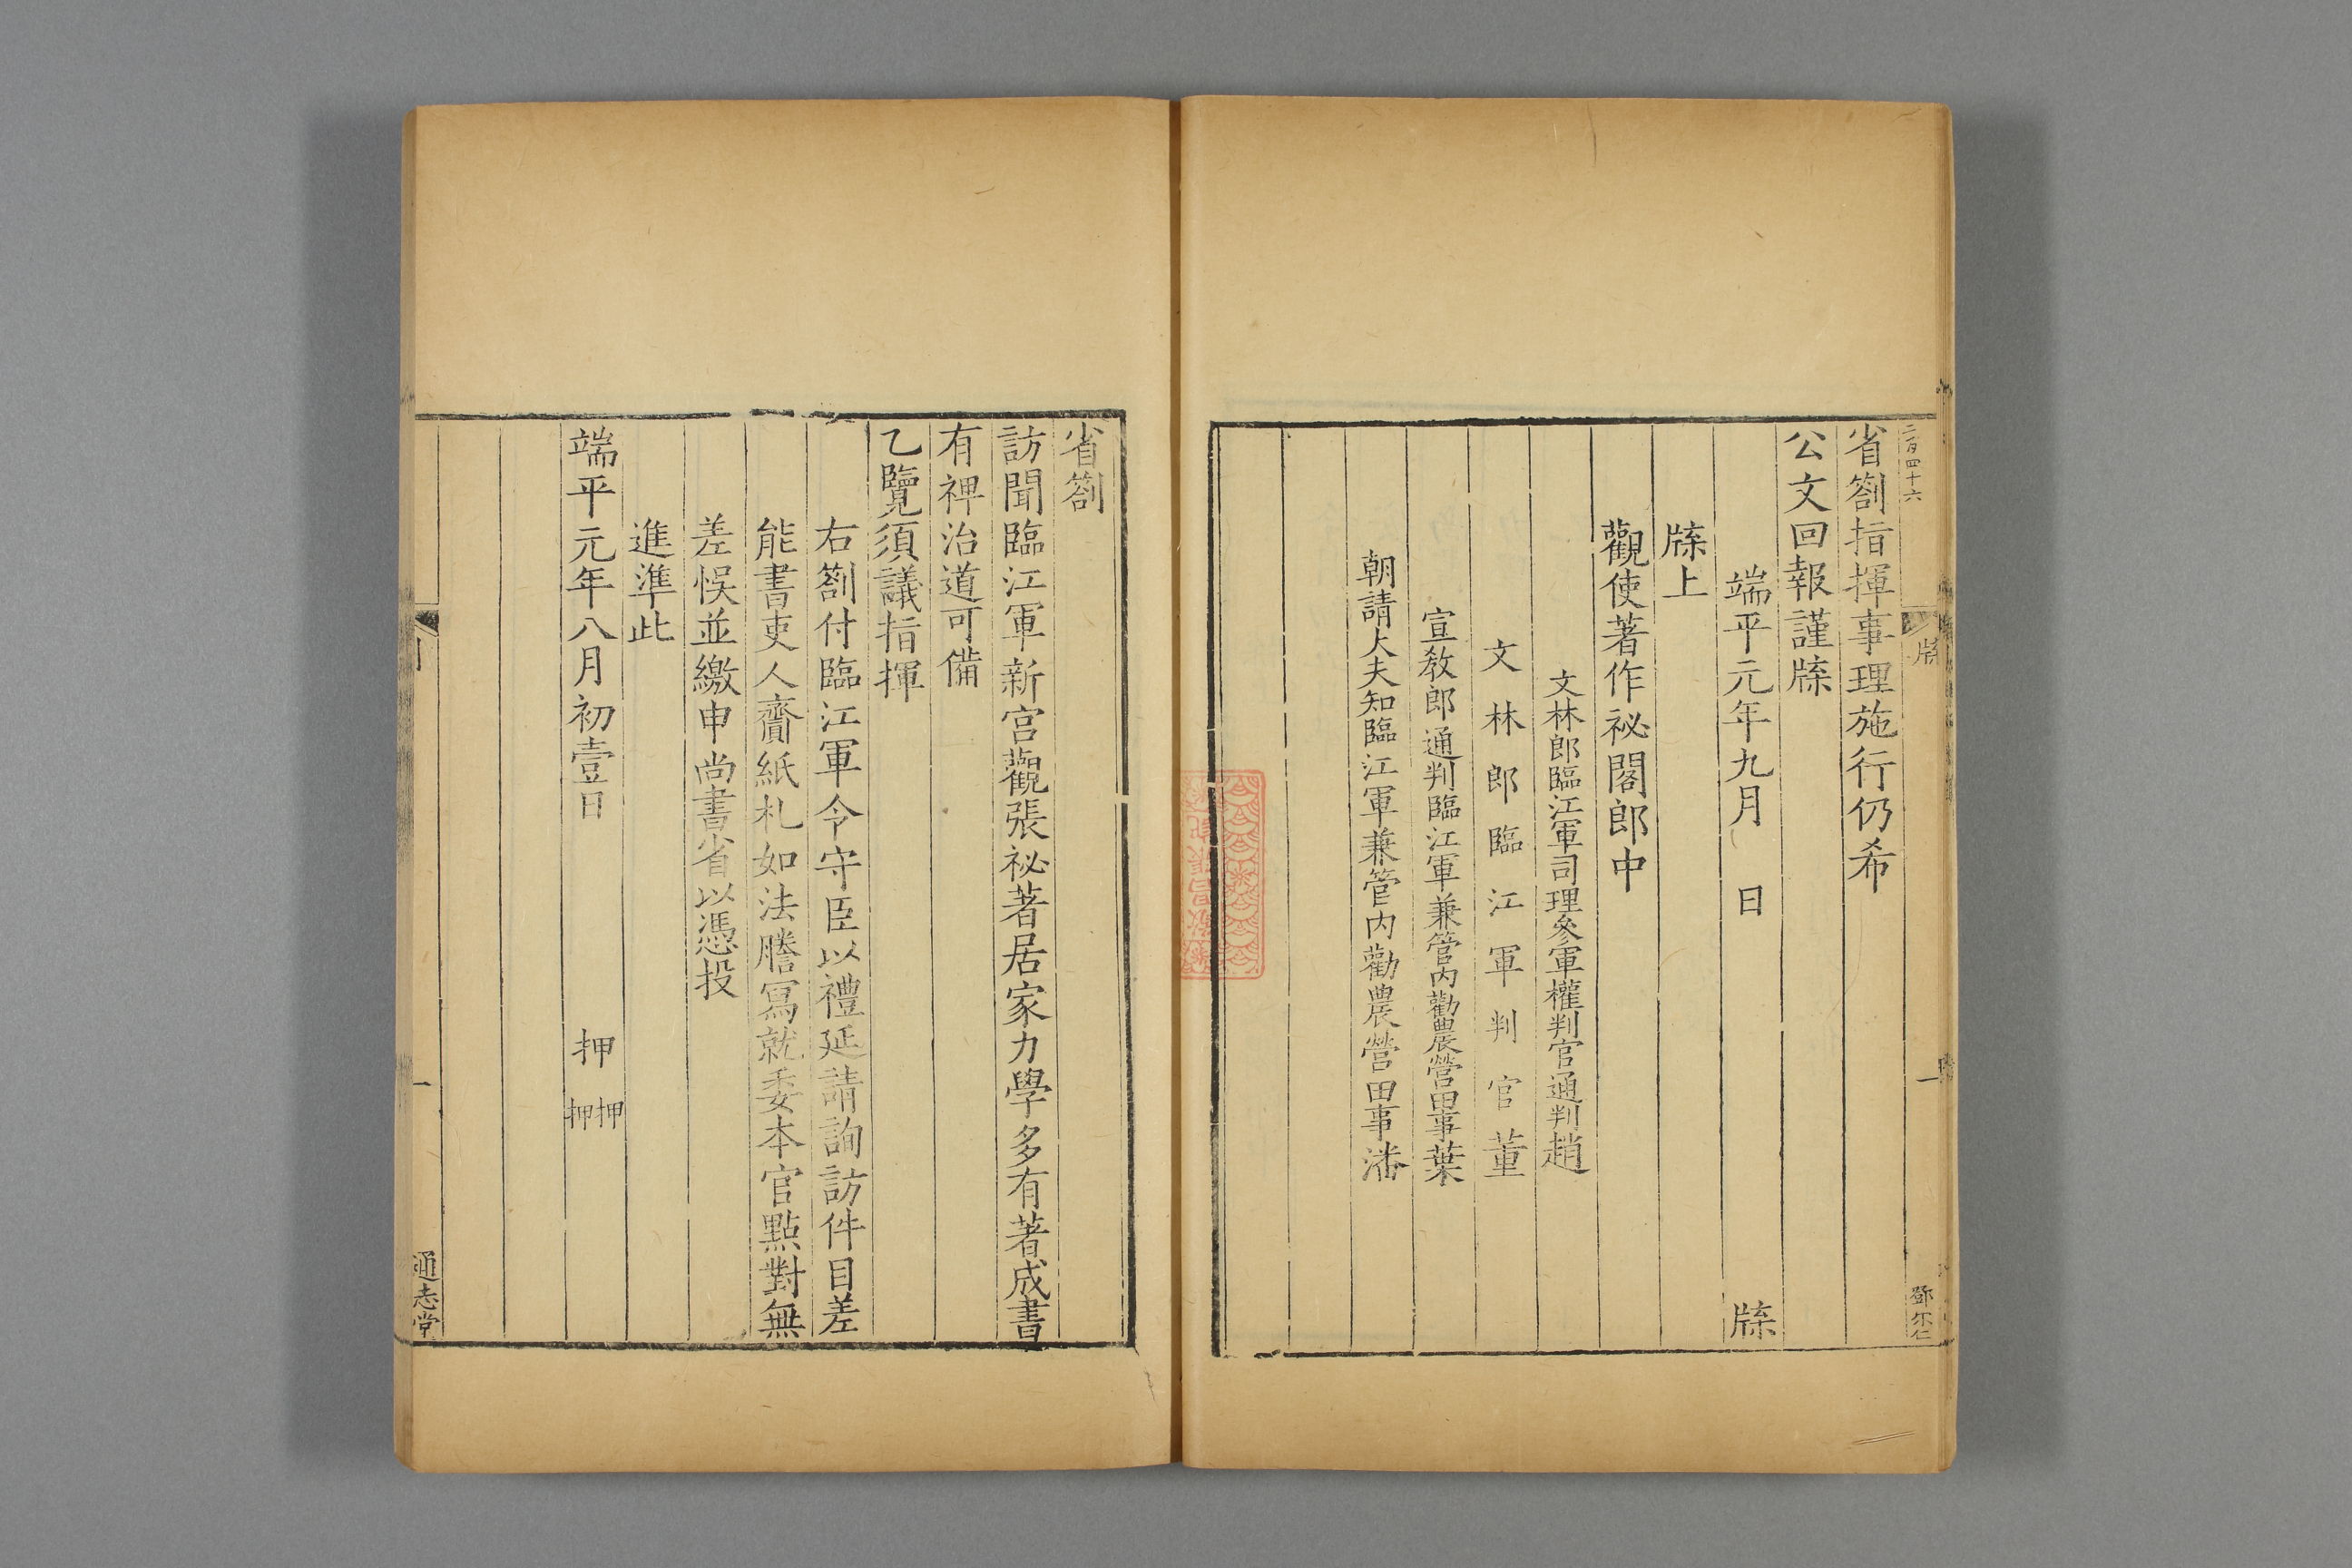 二百四十六
牒
一
鄧尔仁
省劄指揮事理施行仍希
公文回報謹牒
端平元年九月　日　牒
牒上
觀使著作祕閣郎中
文林郎臨江軍司理參軍權判官通判趙
文林郎臨江軍判官董
宣教郎通判臨江軍兼管內勸農營田事葉
朝請大夫知臨江軍兼管內勸農營田事潘
省劄
訪聞臨江軍新宮觀張祕著居家力學多有著成書
有裨治道可備
乙覽須議指揮
右劄付臨江軍令守臣以禮延請詢訪件目差
能書吏人齎紙札如法謄寫就委本官點對無
差悮並繳申尚書省以憑投
進準此
端平元年八月初壹日　押　押押
一
通志堂